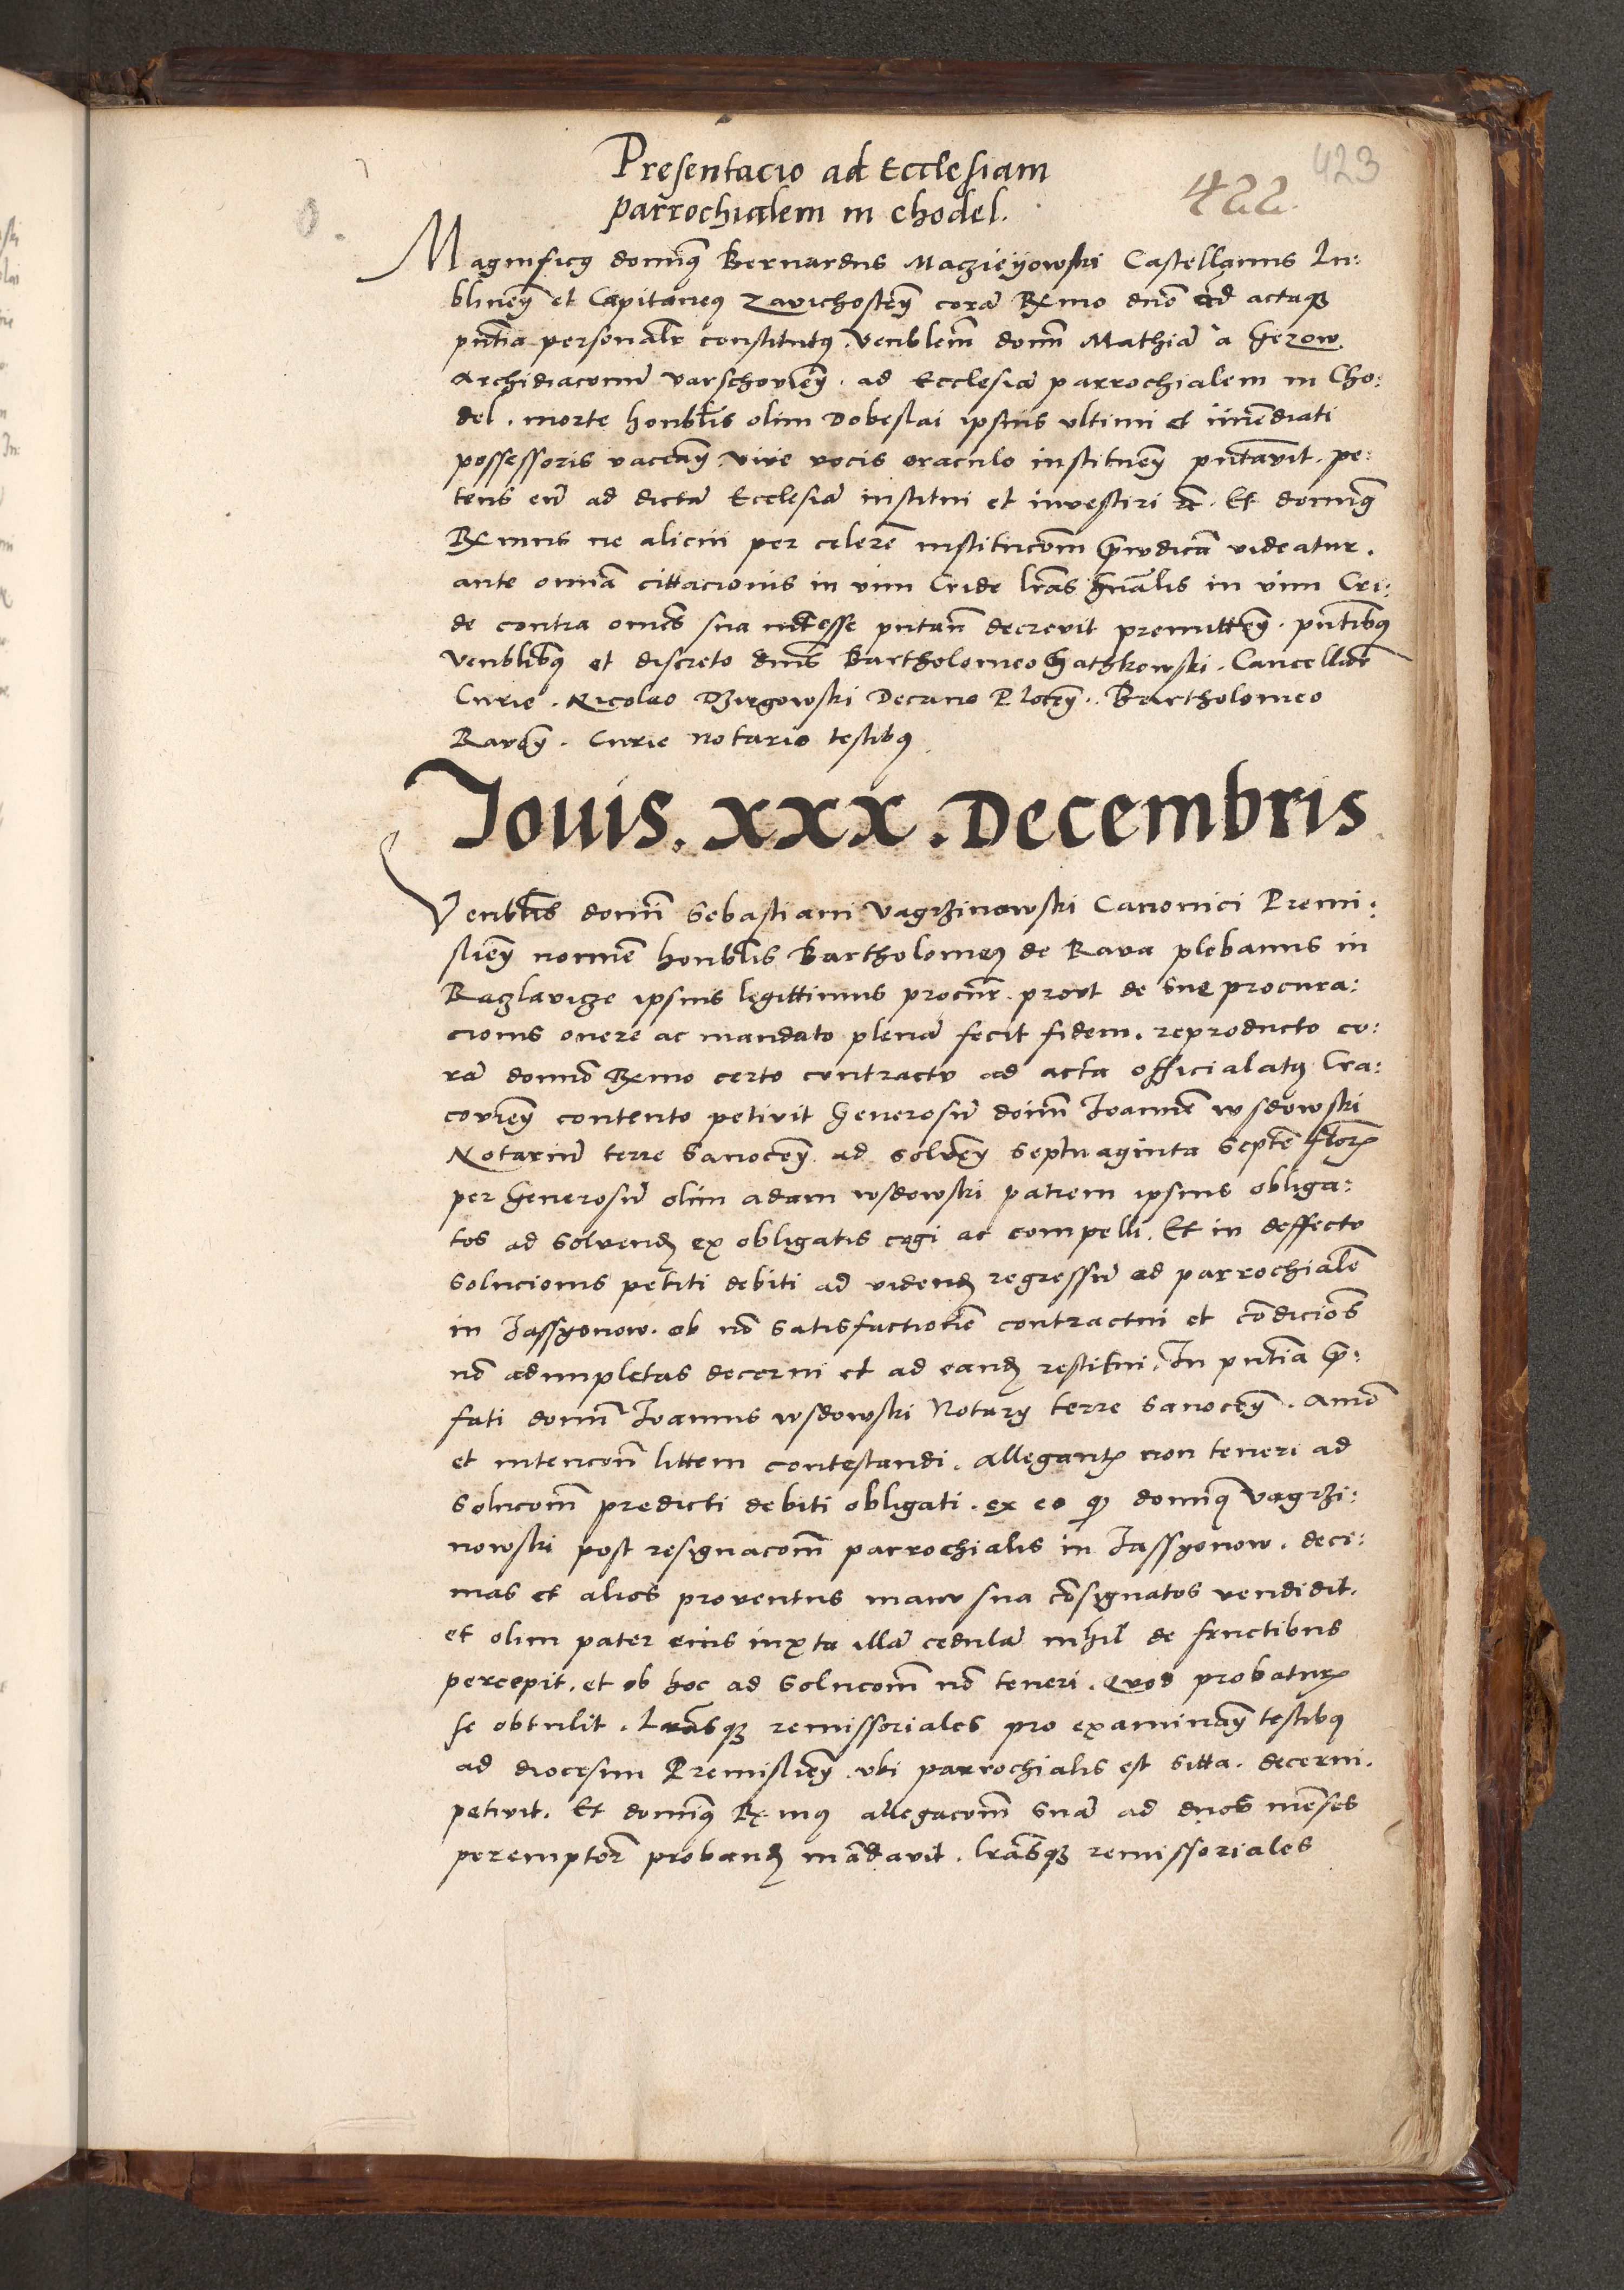 Presentacio ad Ecclesiam
parrochialem in chodel.
422
423
Magnificus dominus Bernardus Maczieyowski Castellanus Lu:
blineñ et Capitaneus Zavichosteñ corã Rxmo dño ad actaqz
pñtia personalr constitutus venblem domñ Mathiã a Gezow
Archidiaconũ varschovieñ. ad Ecclesiã parrochialem in Cho:
del. morte honblis olim Dobeslai ipsius ultimi et imediati
possessoris vaceñ. vive vocis oraculo institueñ pñtavit. pe:
tens eũ ad dictã Ecclesiã institui et investiri etc. Et dominus
Rxmus ne alicui per celerẽ institucom preiudicã videatur.
ante omnia cittacionis in vim Cride lras gñalis in vim Cri:
de contra omẽs sua interesse putañ decrevit premitteñ. pñtibus
venblibus et discreto dnis Bartholomeo Gathkowski. Cancellar
Curie. Nicolao Dzirgowski Decano Ploceñ. Bartholomeo
Raveñ. Curie notario testibus
Jovis. xxx. Decembris
Venblis domĩ Sebastiani Vagrzinowski Canonici Premi:
slieñ nomĩe honblis Bartholomeus de Rava plebanus in
Raczlavicze ipsius legittimus procur. prout de sue procura:
cionis onere ac mandato plenã fecit fidem. reproducto co:
rã domno Rxmo certo contractu ad acta officialatus Cra:
covieñ contento petivit Generosũ domĩ Joannẽ wsdowski
Notariũ terre Sanoceñ ad solveñ septuaginta septẽ flor
per Generosũ olim adam wsdowski patrem ipsius obliga:
tos ad solvend ex obligatis cogi ac compelli. Et in deffectu
solucionis petiti debiti ad videnđ regressũ ad parrochialẽ
in Jassyonow. ob nõ satisfactionẽ contractui et cõdiciões
nõ adimpletas decerni et ad eandẽ restitui. In pñtia pre:
fati domĩ Joannis wsdowski Notarij terre Sanoceñ. Animo
et intencom littem contestandi. Allegantis non teneri ad
solucom predicti debiti obligati. ex eo qz dominus Vagrzi:
nowski post resignacom parrochialis in Jassyonow. deci:
mas et alios proventus manu sua cõsignatos vendidit.
et olim pater eius iuxta illã cedulã nihil de fructibus
percepit. et ob hoc ad solucom nõ teneri. Quod probaturus
se obtulit. Lrasqz remissoriales pro examinañ testibus
ad diocesim Premislieñ. ubi parrochialis est sitta. decerni.
petivit. Et dominus Rxmus allegacom suã ad duos mẽses
peremptor probanđ mãdavit. lrasqz remissoriales